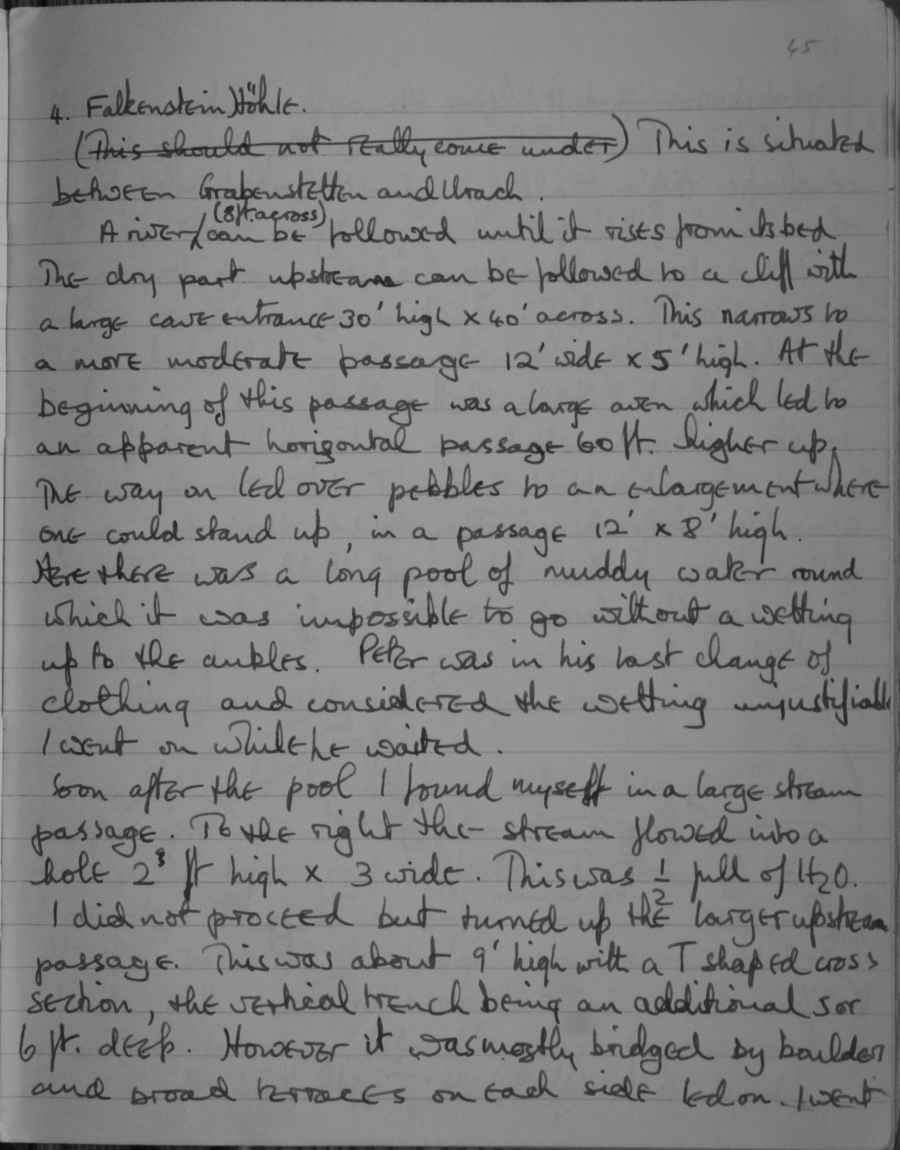 45
4. Falkenstein Höhle.
(This should not really come under) This is situated
between Grabenstetten and Urach.
(8ft. across)
A river / can be followed until it rises from its bed
The dry part upstream can be followed to a cliff with
a large cave entrance 30' high x 40' across. This narrows to
a more moderate passage 12' wide x 5' high. At the
beginning of this passage was a large aven which led to
an apparent horizontal passage 60 ft. higher up.
The way on led over pebbles to an enlargement where
one could stand up, in a passage 12' x 8' high.
Here there was a long pool of muddy water round
which it was impossible to go without a wetting
up to the ankles. Peter was in his last change of
clothing and considered the wetting unjustifiable
I went on while he waited.
Soon after the pool I found myself in a large stream
passage. To the right the stream flowed into a
hole 2 ft high x 3 wide. This was ½ full of H2O.
I did not proceed but turned up the larger upstream
passage. This was about 9' high with a T shaped cross
section, the vertical trench being an additional 5 or
6 ft. deep. However it was mostly bridged by boulders
and broad terraces on each side led on. I went